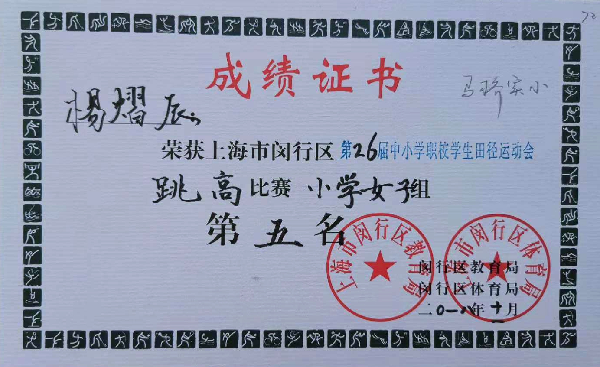 成绩证书
马桥实小
杨熠辰
荣获上海市闵行区第26届中小学职校学生田径运动会
跳高比赛小学女子组
第五名
上海市闵行区教育局
上海市闵行区体育局
闵行区教育局
闵行区体育局
二〇一八年十一月